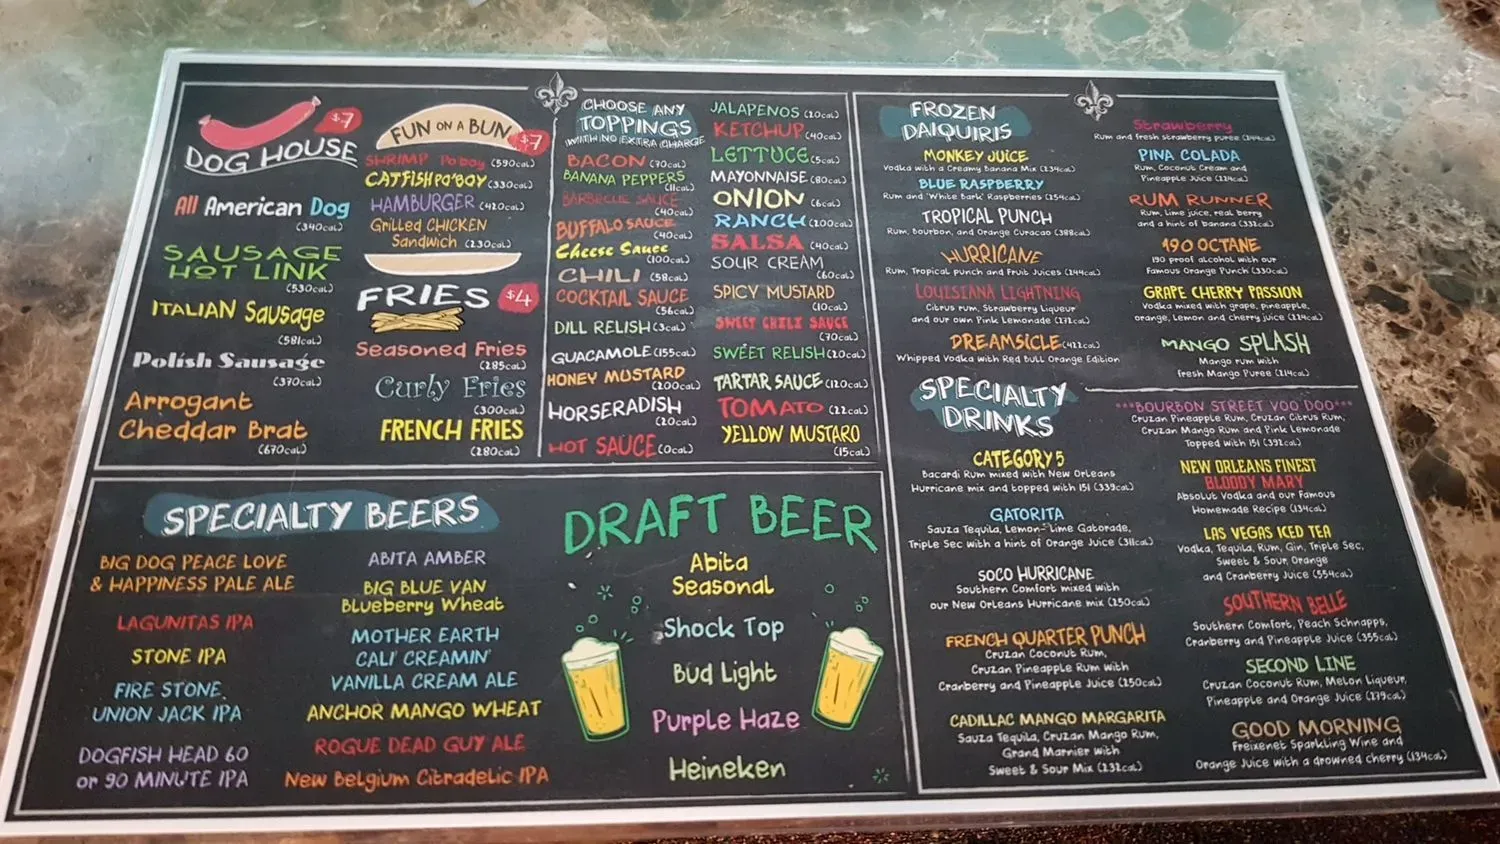 $7
DOG HOUSE
All American Dog
(340cal)
SAUSAGE
HOT LINK
(530cal)
ITALIAN Sausage
(581cal)
Polish Sausage
(370cal)
Arrogant
Cheddar Brat
(670cal)
FUN ON A BUN
$7
SHRIMP Po'boy (590cal)
CATFISH PO'BOY (330cal)
HAMBURGER (420cal)
Grilled CHICKEN
Sandwich (230cal)
FRIES $4
Seasoned Fries
(285cal)
Curly Fries
(300cal)
FRENCH FRIES
(280cal)
CHOOSE ANY
TOPPINGS
WITH NO EXTRA CHARGE
BACON (70cal)
BANANA PEPPERS
(11cal)
BARBECUE SAUCE
(40cal)
BUFFALO SAUCE
(40cal)
Cheese Sauce
(100cal)
CHILI (58cal)
COCKTAIL SAUCE
(56cal)
DILL RELISH (3cal)
GUACAMOLE (155cal)
HONEY MUSTARD
(200cal)
HORSERADISH
(20cal)
HOT SAUCE (0cal)
JALAPENOS (20cal)
KETCHUP (40cal)
LETTUCE (5cal)
MAYONNAISE (80cal)
ONION (6cal)
RANCH (200cal)
SALSA (40cal)
SOUR CREAM
(60cal)
SPICY MUSTARD
(10cal)
SWEET CHILI SAUCE
(70cal)
SWEET RELISH (20cal)
TARTAR SAUCE (120cal)
TOMATO (22cal)
YELLOW MUSTARD
(15cal)
SPECIALTY BEERS
BIG DOG PEACE LOVE
& HAPPINESS PALE ALE
LAGUNITAS IPA
STONE IPA
FIRE STONE
UNION JACK IPA
DOGFISH HEAD 60
or 90 MINUTE IPA
ABITA AMBER
BIG BLUE VAN
Blueberry Wheat
MOTHER EARTH
CALI' CREAMIN'
VANILLA CREAM ALE
ANCHOR MANGO WHEAT
ROGUE DEAD GUY ALE
New Belgium Citradelic IPA
DRAFT BEER
Abita
Seasonal
Shock Top
Bud Light
Purple Haze
Heineken
FROZEN
DAIQUIRIS
MONKEY JUICE
Vodka with a Creamy Banana Mix (234cal)
BLUE RASPBERRY
Rum and 'White Bark' Raspberries (254cal)
TROPICAL PUNCH
Rum, Bourbon, and Orange Curacao (388cal)
HURRICANE
Rum, Tropical punch and Fruit Juices (244cal)
LOUISIANA LIGHTNING
Citrus rum, Strawberry Liqueur
and our own Pink Lemonade (272cal)
DREAMSICLE (422cal)
Whipped Vodka with Red Bull Orange Edition
Strawberry
Rum and fresh strawberry puree (244cal)
PINA COLADA
Rum, Coconut Cream and
Pineapple Juice (224cal)
RUM RUNNER
Rum, lime juice, real berry
and a hint of banana (332cal)
190 OCTANE
190 proof alcohol with our
Famous Orange Punch (330cal)
GRAPE CHERRY PASSION
Vodka mixed with grape, pineapple,
orange, Lemon and cherry juice (224cal)
MANGO SPLASH
Mango rum with
fresh Mango Puree (214cal)
SPECIALTY
DRINKS
CATEGORY 5
Bacardi Rum mixed with New Orleans
Hurricane mix and topped with 151 (339cal)
GATORITA
Sauza Tequila, Lemon-Lime Gatorade,
Triple Sec with a hint of Orange Juice (311cal)
SOCO HURRICANE
Southern Comfort mixed with
our New Orleans Hurricane mix (250cal)
FRENCH QUARTER PUNCH
Cruzan Coconut Rum,
Cruzan Pineapple Rum with
Cranberry and Pineapple Juice (250cal)
CADILLAC MANGO MARGARITA
Sauza Tequila, Cruzan Mango Rum,
Grand Marnier with
Sweet & Sour Mix (232cal)
***BOURBON STREET VOO DOO***
Cruzan Pineapple Rum, Cruzan Citrus Rum,
Cruzan Mango Rum and Pink Lemonade
Topped with 151 (392cal)
NEW ORLEANS FINEST
BLOODY MARY
Absolut Vodka and our Famous
Homemade Recipe (134cal)
LAS VEGAS ICED TEA
Vodka, Tequila, Rum, Gin, Triple Sec,
Sweet & Sour, Orange
and Cranberry Juice (554cal)
SOUTHERN BELLE
Southern Comfort, Peach Schnapps,
Cranberry and Pineapple Juice (355cal)
SECOND LINE
Cruzan Coconut Rum, Melon Liqueur,
Pineapple and Orange Juice (279cal)
GOOD MORNING
Freixenet Sparkling Wine and
Orange Juice with a drowned cherry (134cal)